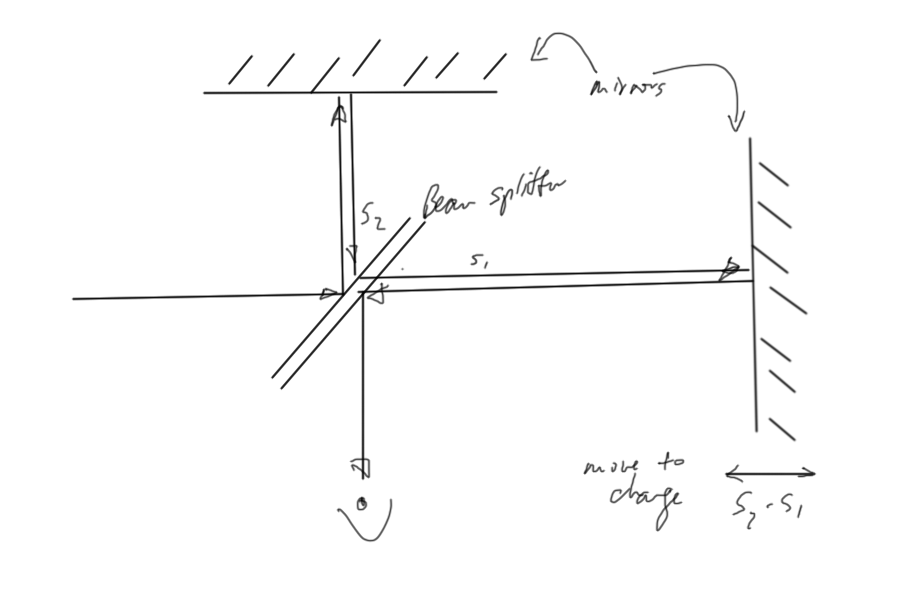 mirrors
Beam splitter
S₂
S₁
move to
change
S₂ - S₁